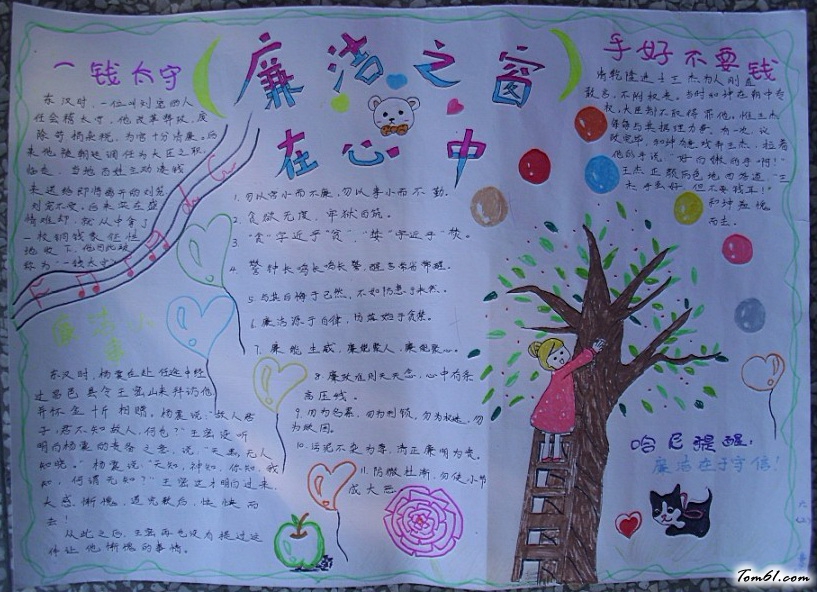 廉洁之窗
在心中
一钱太守
东汉时,一位叫刘宠的人
任会稽太守,他改革弊政,废
除苛捐杂税,为官十分清廉。后
来他被朝廷调任为大臣之职,
临走,当地百姓主动凑钱
来送给即将离开的刘宠,
刘宠不受。后来实在盛
情难却,就从中拿了
一枚铜钱象征性
地收下,他因此被
称为“一钱太守”
廉洁小
东汉时,杨震在赴任途中经
过昌邑县令王密山来拜访他
并怀金十斤相赠,杨震说:“故人知
君,君不知故人,何也?”王密没听
明白杨震的责备之意,说,“天黑,无人
知晓。”杨震说“天知,神知,你知,我
知,何谓无知?”王密这才明白过来,
大感惭愧,道完歉后,怏怏而
去!
从此之后,王密再也没有提过这
件让他惭愧的事情。
1. 勿以官小而不廉,勿以事小而不勤。
2. 贪欲无度,牢狱百丽。
3 “贪”字近乎“贫”,“婪”字近乎“焚。
4. 警钟长鸣长鸣长警,醒语常省常醒。
5. 与其自悔于已然,不如防患于未然。
6. 廉洁源于自律,堕落始于贪婪。
7. 廉能生威,廉能聚人,廉能聚心。
8. 廉政准则天天念,心中有杀
高压线。
9. 勿为名累,勿为利锁,勿为权迷,勿
为欲困。
10. 污泥不染为尊,清正廉明为贵。
11. 防微杜渐,勿使小节
成大恶。
手好不要钱
清乾隆进士王杰为人刚直
敢言,不附权贵。当时和珅在朝中专
权,大臣都不敢得罪他,惟王杰
每每与其据理力争。有一次,议
政完毕,和珅有意戏弄王杰,拉着
他的手说,“好白嫩的手啊!”
王杰正颜厉色地回答道“王
杰手虽好,但不要钱耳!”
和珅羞愧
而去。
哈尼提醒:
廉洁在于守信!
Tom61.com